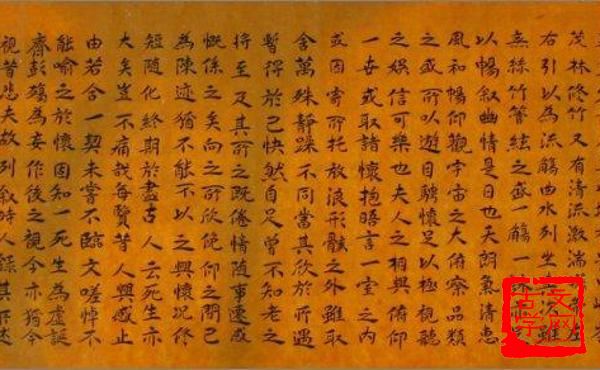 茂林修竹又有清流激湍
右引以為流觴曲水列坐其次雖
無絲竹管絃之盛一觴一詠
以暢叙幽情是日也天朗氣清惠
風和暢仰觀宇宙之大俯察品類
之盛所以遊目騁懷足以極視聽
之娛信可樂也夫人之相與俯仰
一世或取諸懷抱晤言一室之內
或因寄所托放浪形骸之外雖取
舍萬殊靜躁不同當其欣於所遇
暫得於己快然自足曾不知老之
將至及其所之既倦情随事遷感
慨係之矣向之所欣俛仰之間已
為陳迹猶不能不以之興懷况修
短随化終期於盡古人云死生亦
大矣豈不痛哉每覽昔人興感之
由若合一契未嘗不臨文嗟悼不
能喻之於懷固知一死生為虛誕
齊彭殤為妄作後之視今亦猶今
視昔悲夫故列叙時人錄其所述
古文
学网